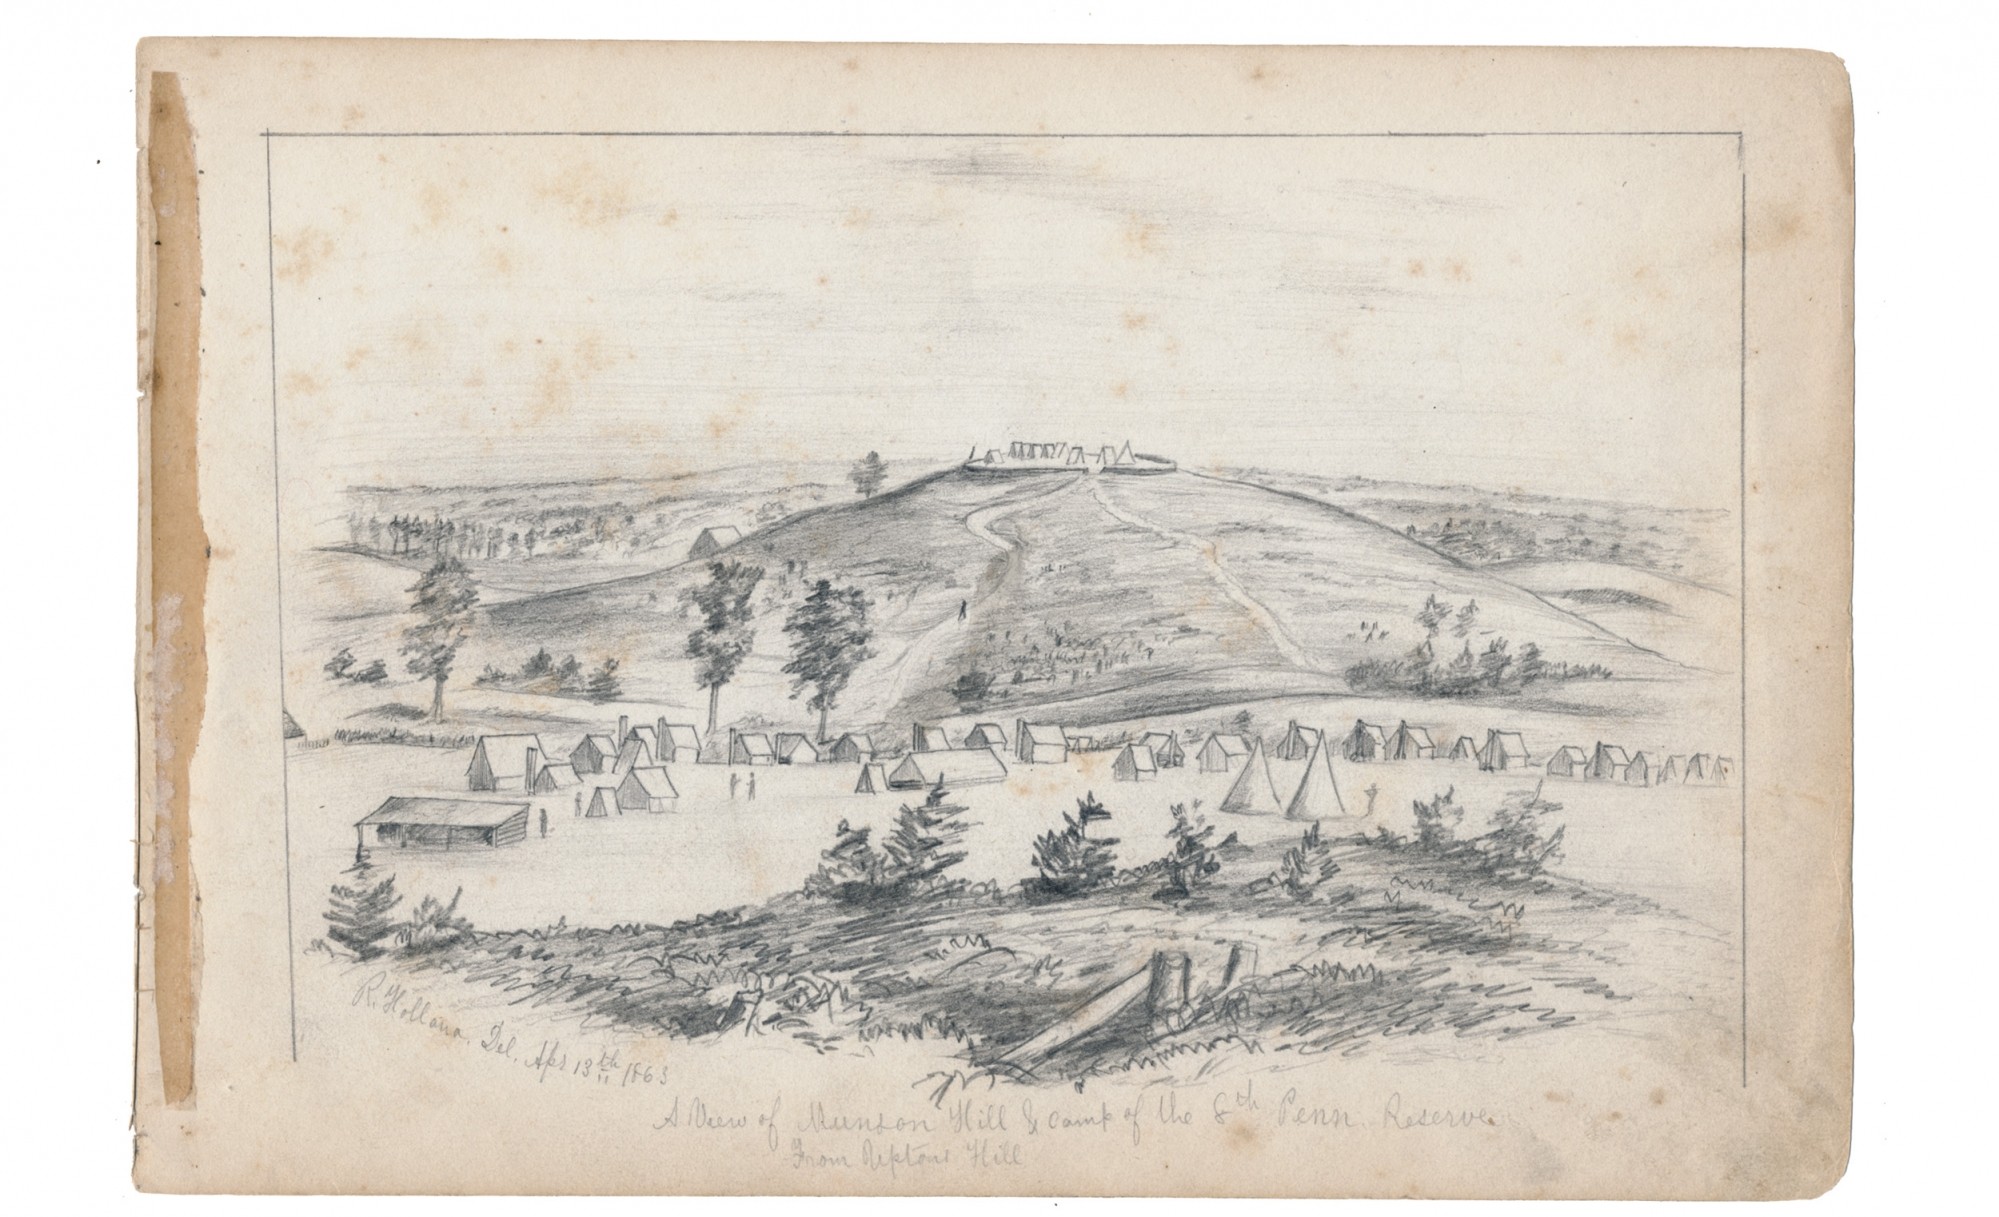 R. Holland. Del. Apr 13th 1863
A View of Munson Hill & camp of the 8th Penn. Reserve.
From Upton's Hill